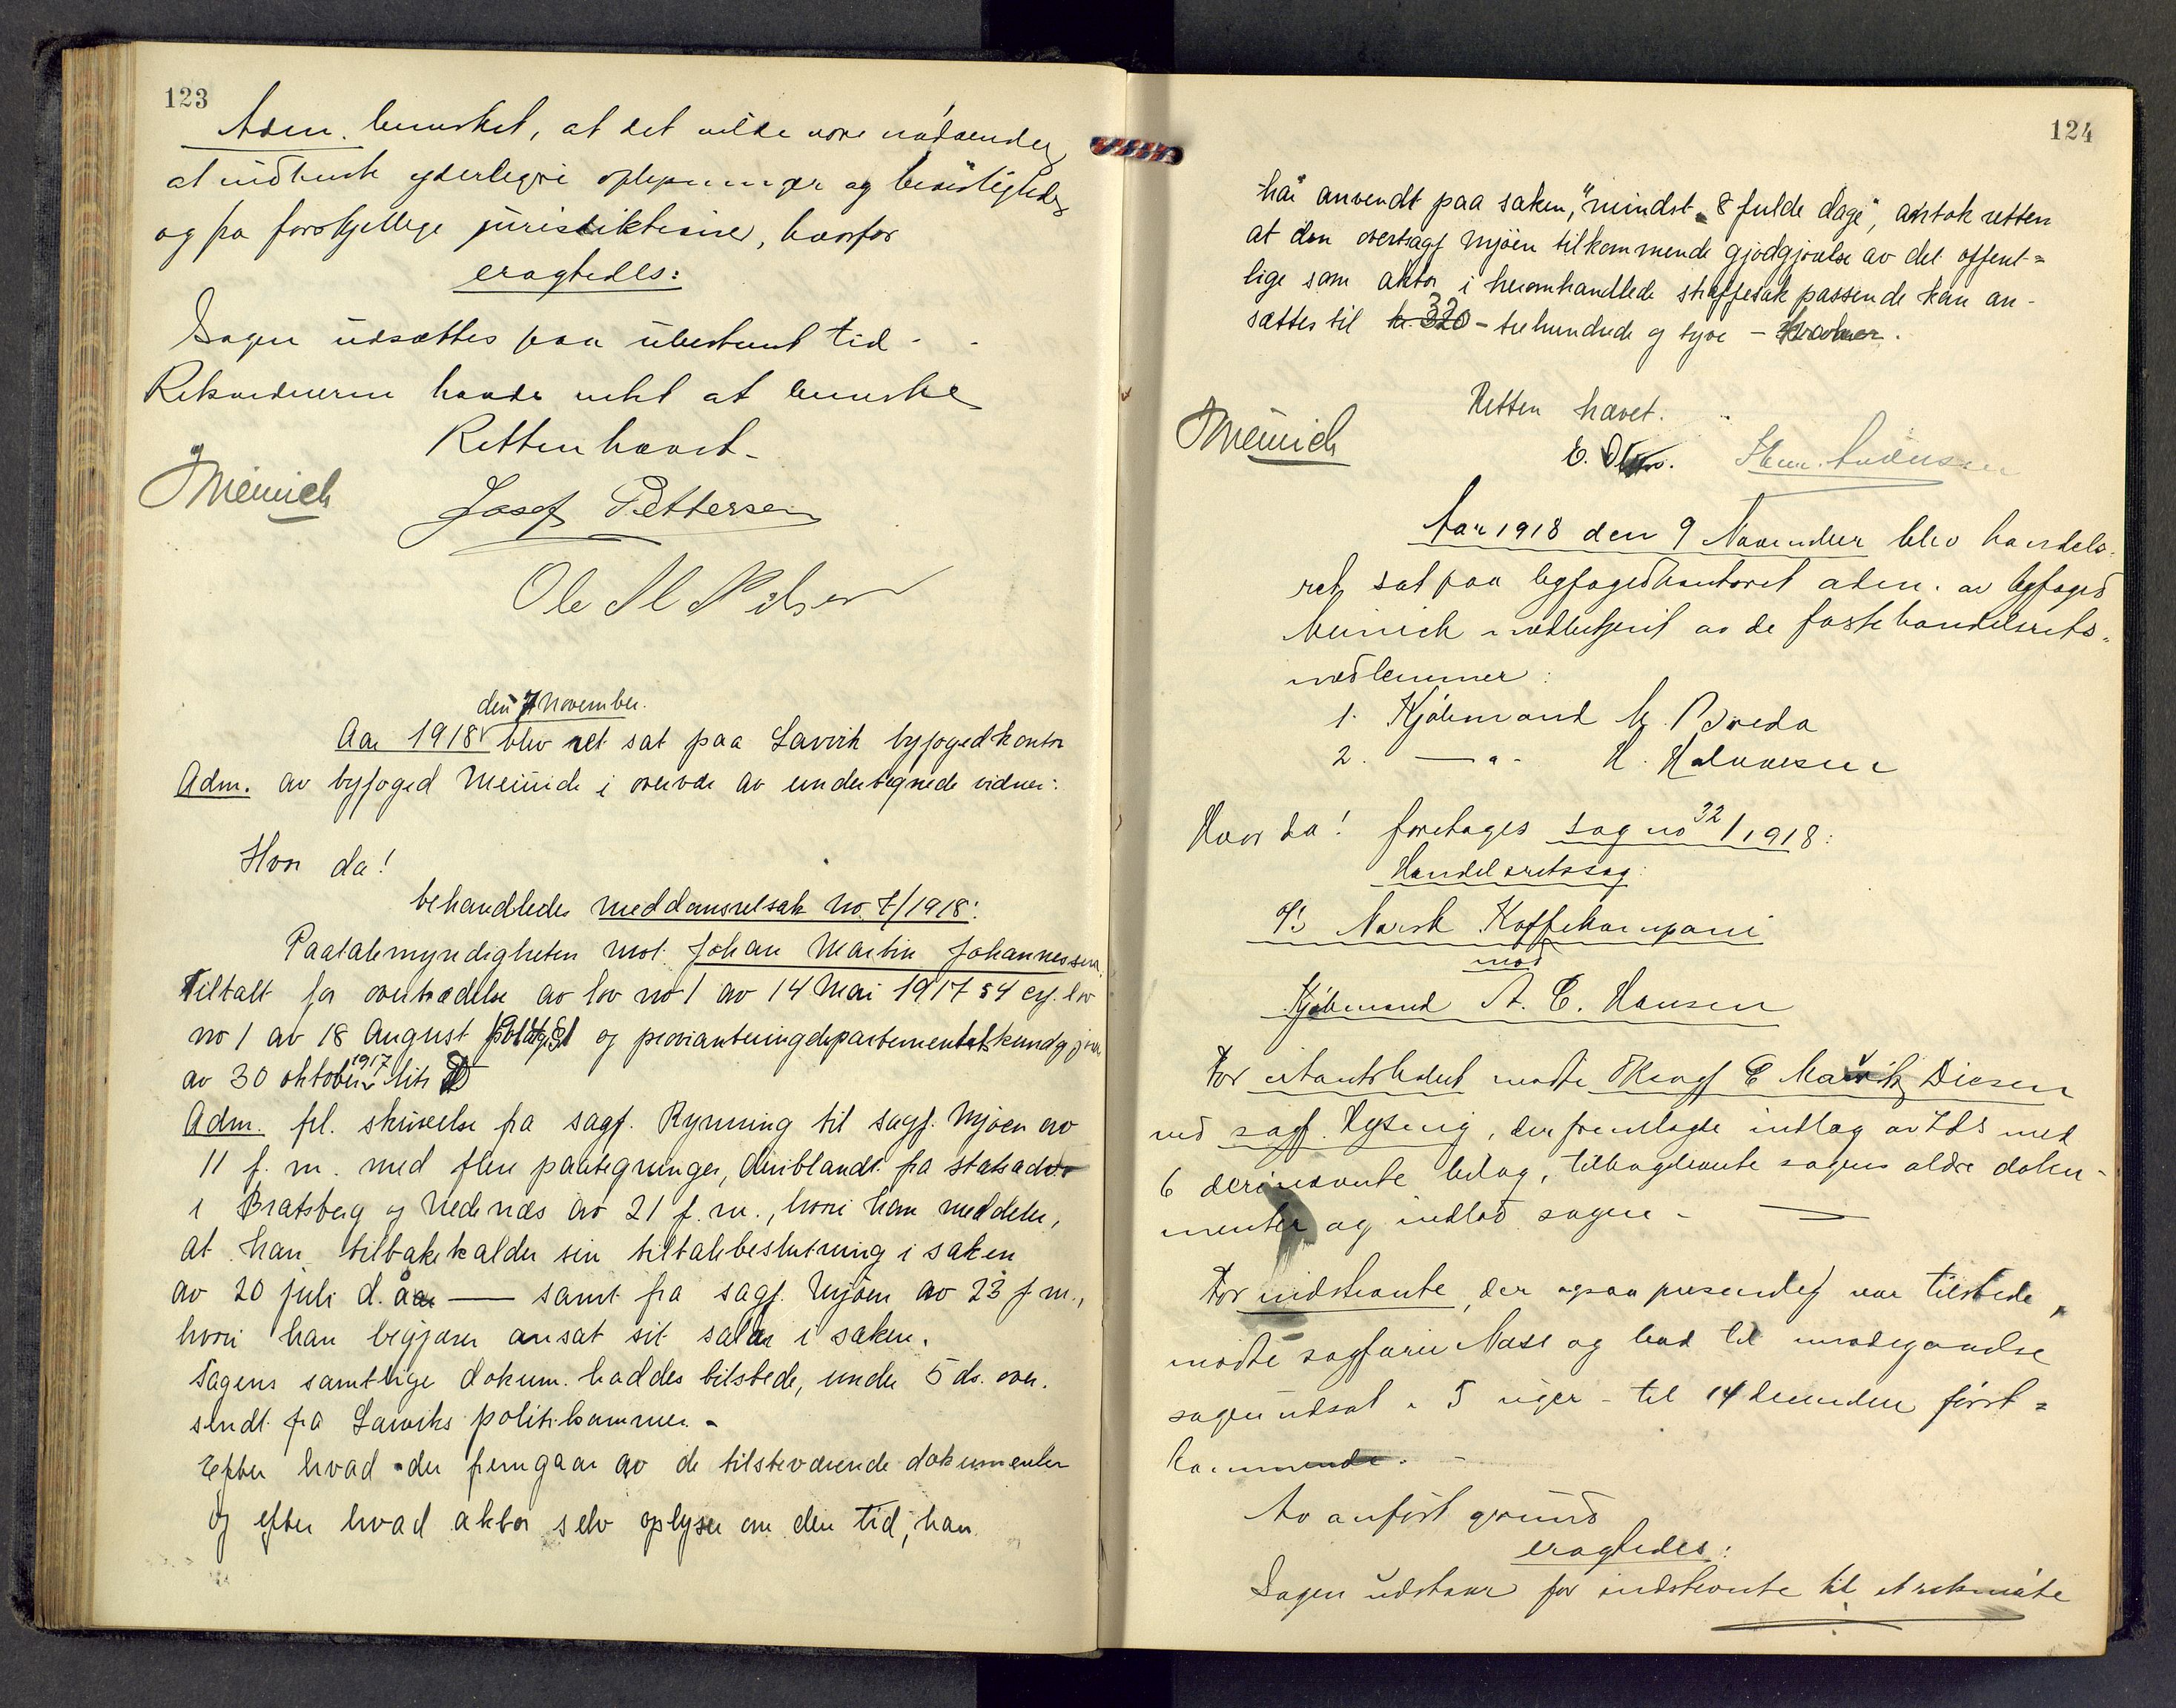 123
Adm. bemerket, at det vilde være nødvendig
at indhente yderligere oplysninger og bevisligheder
og fra forskjellige jurisdiktioner, hvorfor
eragtedes:
Sagen udsættes paa ubestemt tid -
Rekvirenterne havde intet at bemerke
Retten hævet -
Meinich
Josef Pettersen
Ole M Nilsen
den 7 november.
Aar 1918 blev ret sat paa Larvik byfogedkontor
Adm. av byfoged Meinich i overvær av undertegnede vidner:
Hvor da!
behandledes meddomsretsak no. 7/1918:
Paatalemyndigheten mot Johan Martin Johannessen.
Tiltalt for overtrædelse av lov no 1 av 14 Mai 1917 § 4 cfr. lov
no 1 av 18 August og provianteringsdepartementets kundgjør
av 30 oktober 1917 litr D
Adm. frl. skrivelse fra sagf. Rynning til sagf. Mjøen av
11 f. m. med flere paategninger, deriblandt fra statsadv.
i Bratsberg og Nedenæs av 21 f. m., hvori han meddeler,
at han tilbakekalder sin tiltalebeslutning i saken
av 20 juli d. år — samt fra sagf. Mjøen av 23 f m.,
hvori han begjærer ansat sit salær i saken.
Sagens samtlige dokum. haddes tilstede, under 5 ds. over-
sendt fra Larviks politikammer. -
Efter hvad der fremgaar av de tilsteværende dokumenter
og efter hvad aktor selv oplyser om den tid, han
124
har anvendt paa saken, "mindst 8 fulde dage", antok retten
at den oversagf Mjøen tilkommende godtgjørelse av det offent=
lige som aktor i heromhandlede straffesak passende kan an-
sættes til kr. 320 - trehundrede og tyve - kroner.
Retten hævet.
Meinich
E. Olsen. Andersen
Aar 1918 den 9 November blev handels-
ret sat paa byfogedkontoret adm. av byfoged
Meinich medbetjent av de faste handelsrets-
medlemmer:
1. Kjøbmand M. Breda
2. —"— H. Halvorsen
Hvor da! foretages sag no 32/1918:
Handelsretssag:
A/S Norsk Kaffekompani
mod
Kjøbmand A. C. Hansen
For citantskabet mødte Oksagf C Diesen
ved sagf. Hysing, der fremlagde indlæg av 7 ds med
6 deri nævnte bilag, tilbageleverte sagens ældre doku-
menter og indlod sagen -
For indstevnte, der ogsaa personlig var tilstede,
mødte sagfører Næss og bad til imødegaaelse
sagen udsat i 5 uger - til 14 december først=
kommende. -
Av anført grund
eragtedes:
Sagen udstaar for indstevnte til et retsmøte